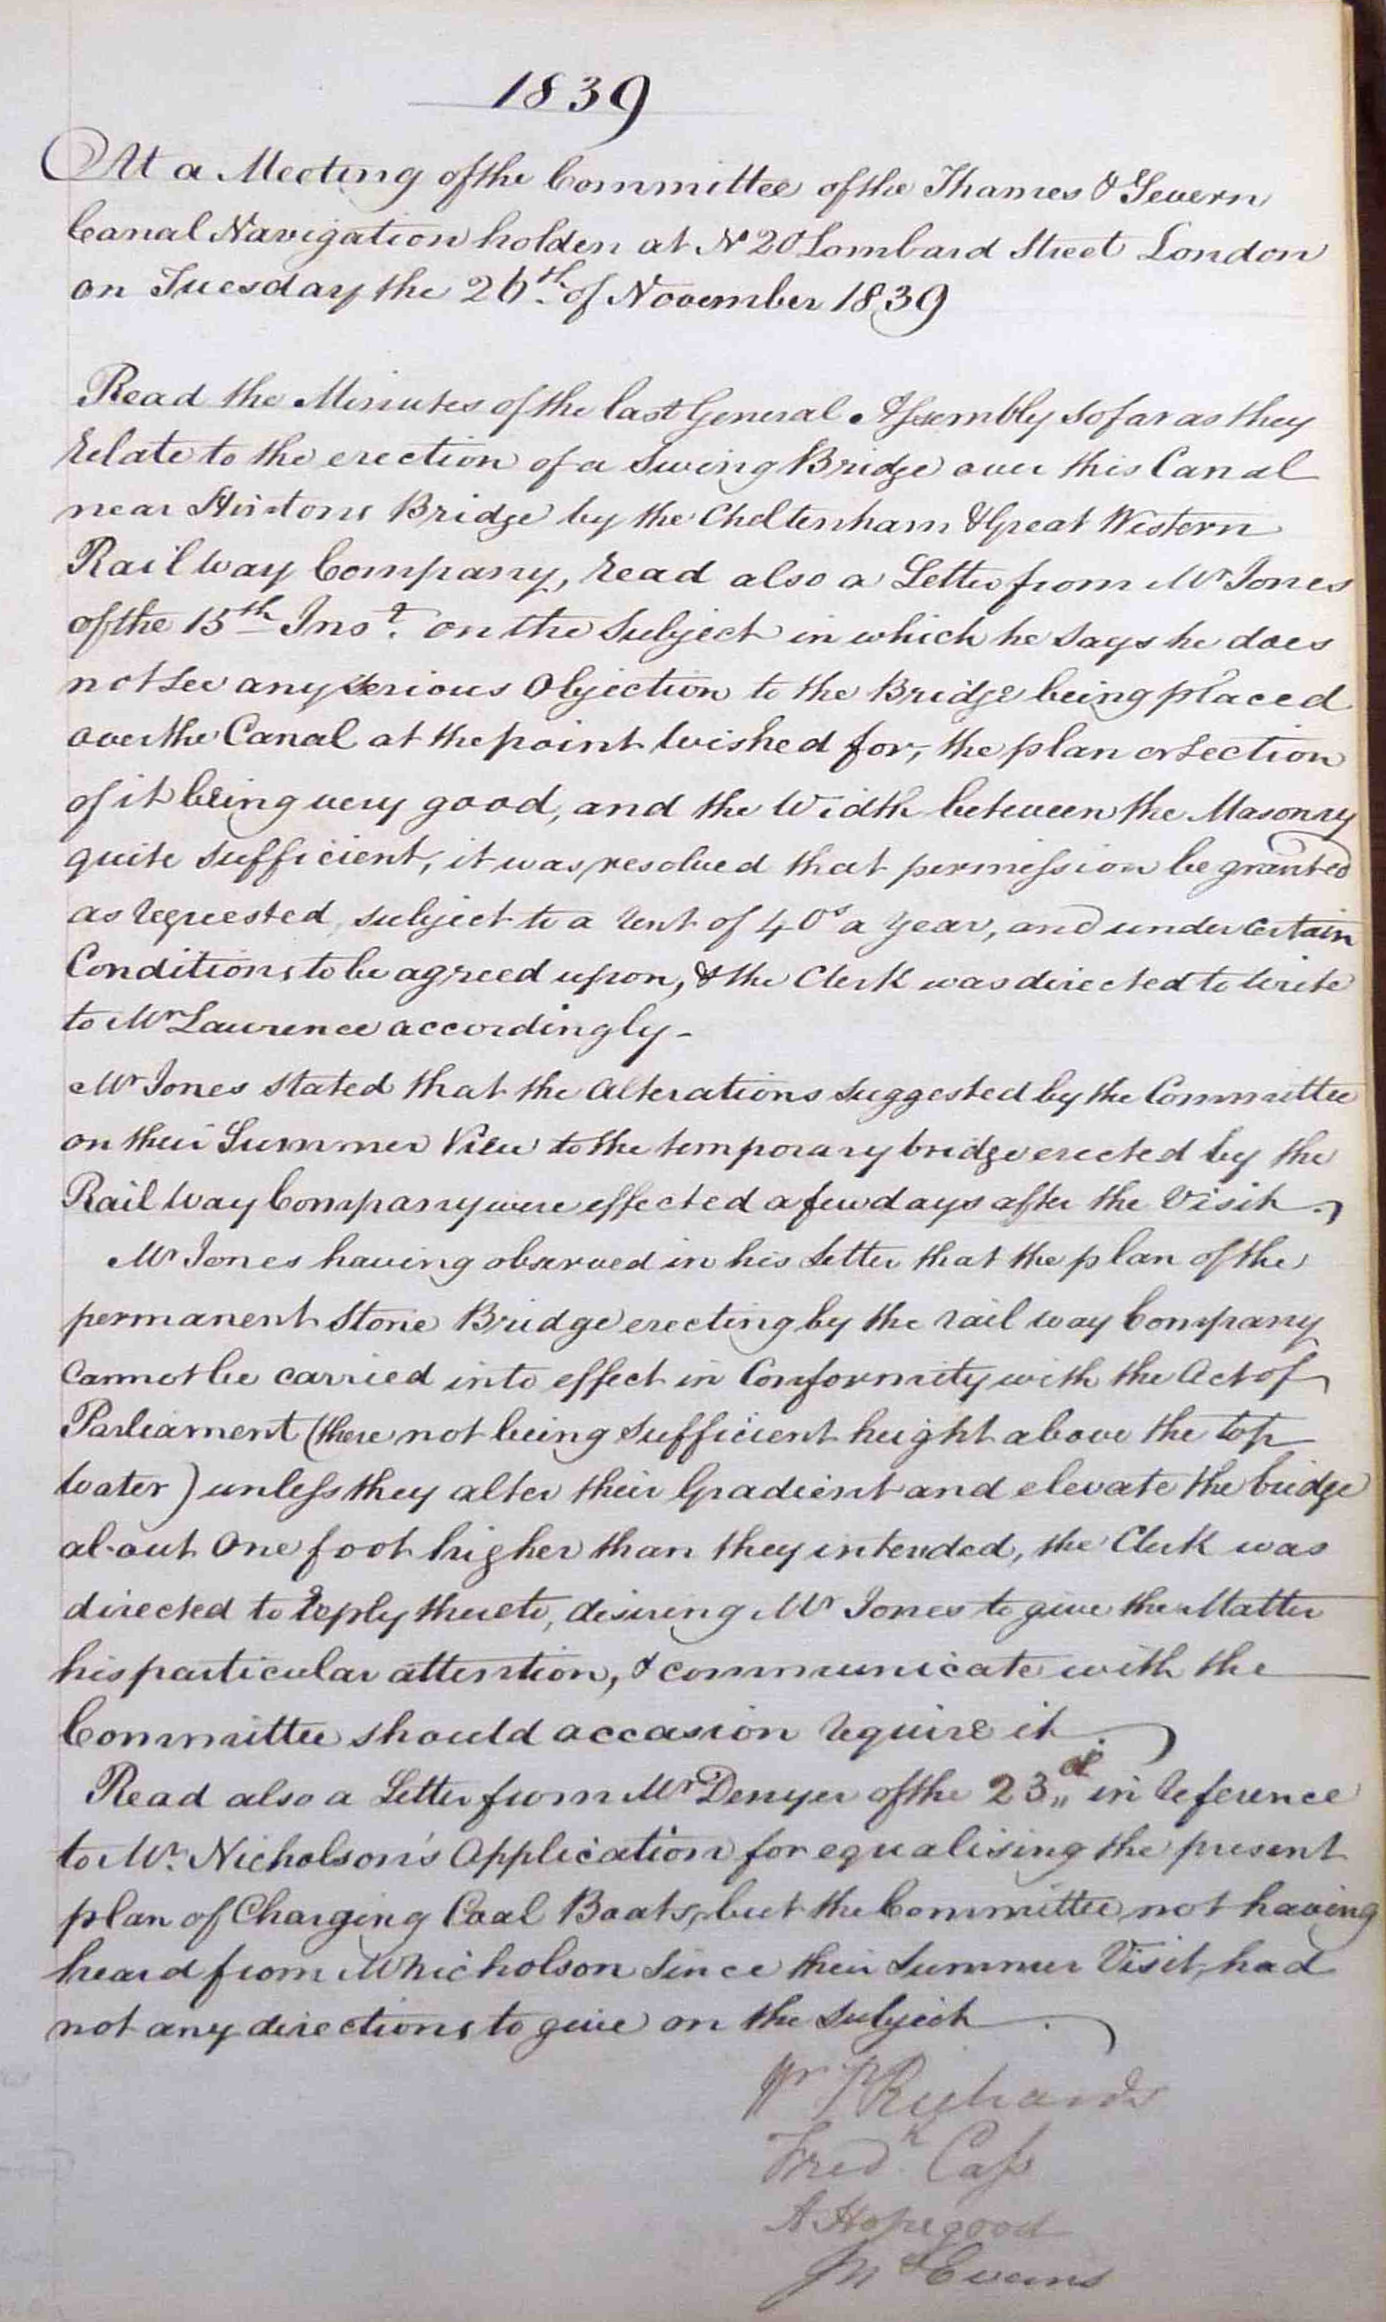 1839
At a Meeting of the Committee of the Thames & Severn
Canal Navigation holden at No 20 Lombard Street London
on Tuesday the 26th of November 1839
Read the Minutes of the last General Assembly so far as they
relate to the erection of a Swing Bridge over this Canal
near Bridge by the Cheltenham & Great Western
Railway Company, read also a Letter from Mr Jones
of the 15th Inst. on the Subject in which he says he does
not see any serious Objection to the Bridge being placed
over the Canal at the point wished for, the plan or section
of it being very good, and the Width between the Masonry
quite sufficient, it was resolved that permission be granted
as requested, subject to a rent of 40s a year, and under certain
Conditions to be agreed upon, & the Clerk was directed to write
to Mr Laurence accordingly -
Mr Jones stated that the Alterations suggested by the Committee
on their Summer View to the temporary bridge erected by the
Rail Way Company were effected a few days after the Visit.
Mr Jones having observed in his Letter that the plan of the
permanent Stone Bridge erecting by the rail way Company
cannot be carried into effect in Conformity with the Act of
Parliament (there not being sufficient height above the top
water) unless they alter their Gradient and elevate the bridge
about One foot higher than they intended, the Clerk was
directed to reply thereto, desiring Mr Jones to give the Matter
his particular attention, & communicate with the
Committee should occasion require it.
Read also a Letter from Mr Denyer of the 23d in reference
to Mr. Nicholson's Application for equalising the present
plan of Charging Coal Boats, but the Committee not having
heard from Mr Nicholson since their Summer Visit, had
not any directions to give on the subject.
Wm P Richards
Fredk Cass
A Hopegood
Evans